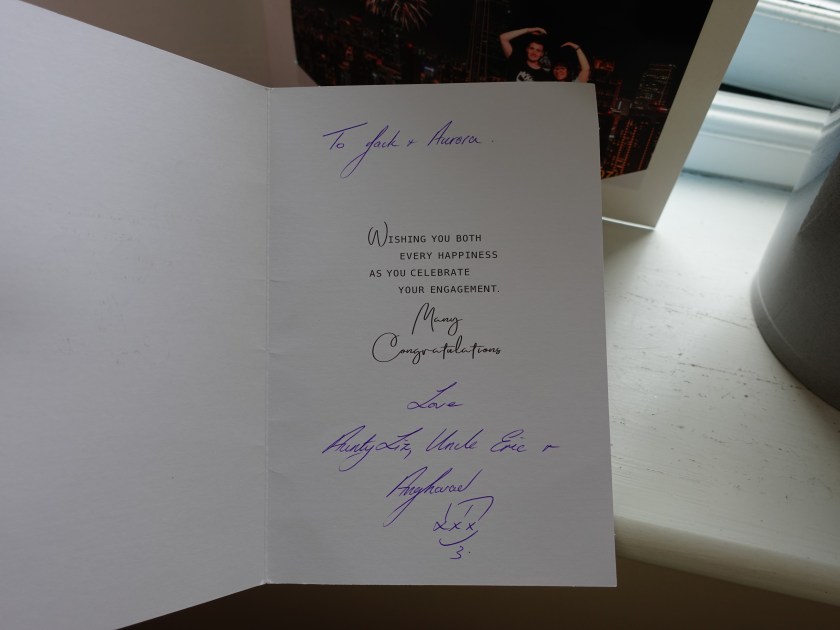 To Jack + Aurora.
WISHING YOU BOTH
EVERY HAPPINESS
AS YOU CELEBRATE
YOUR ENGAGEMENT.
Many
Congratulations
Love
Aunty Liz, Uncle Eric +
Angharad
xxx
3.